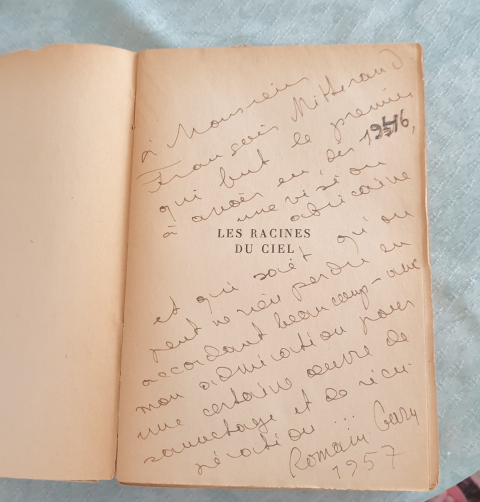 à Monsieur
François Mitterand
qui fut le premier
à avoir eu, dès 1946,
une vision
africaine
LES RACINES
DU CIEL
et qui sait qu'on
peut ne rien perdre en
accordant beaucoup - avec
mon admiration pour
une certaine œuvre de
sauvetage et de récu-
pération ...
Romain Gary
1957